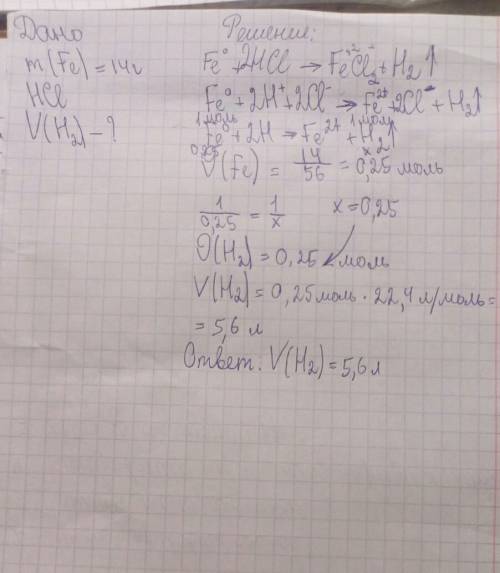 Дано
Решение:
m(Fe) = 14г
HCl
V(H₂) - ?
Fe⁰ + 2HCl → Fe⁺²Cl₂⁻ + H₂↑
Fe⁰ + 2H⁺ + 2Cl⁻ → Fe²⁺ + 2Cl⁻ + H₂↑
1 моль 1 моль
Fe⁰ + 2H → Fe²⁺ + H₂↑
0,25 x
ν(Fe) = 14/56 = 0,25 моль
1/0,25 = 1/x x = 0,25
ν(H₂) = 0,25 моль
V(H₂) = 0,25 моль · 22,4 л/моль =
= 5,6 л
Ответ. V(H₂) = 5,6 л